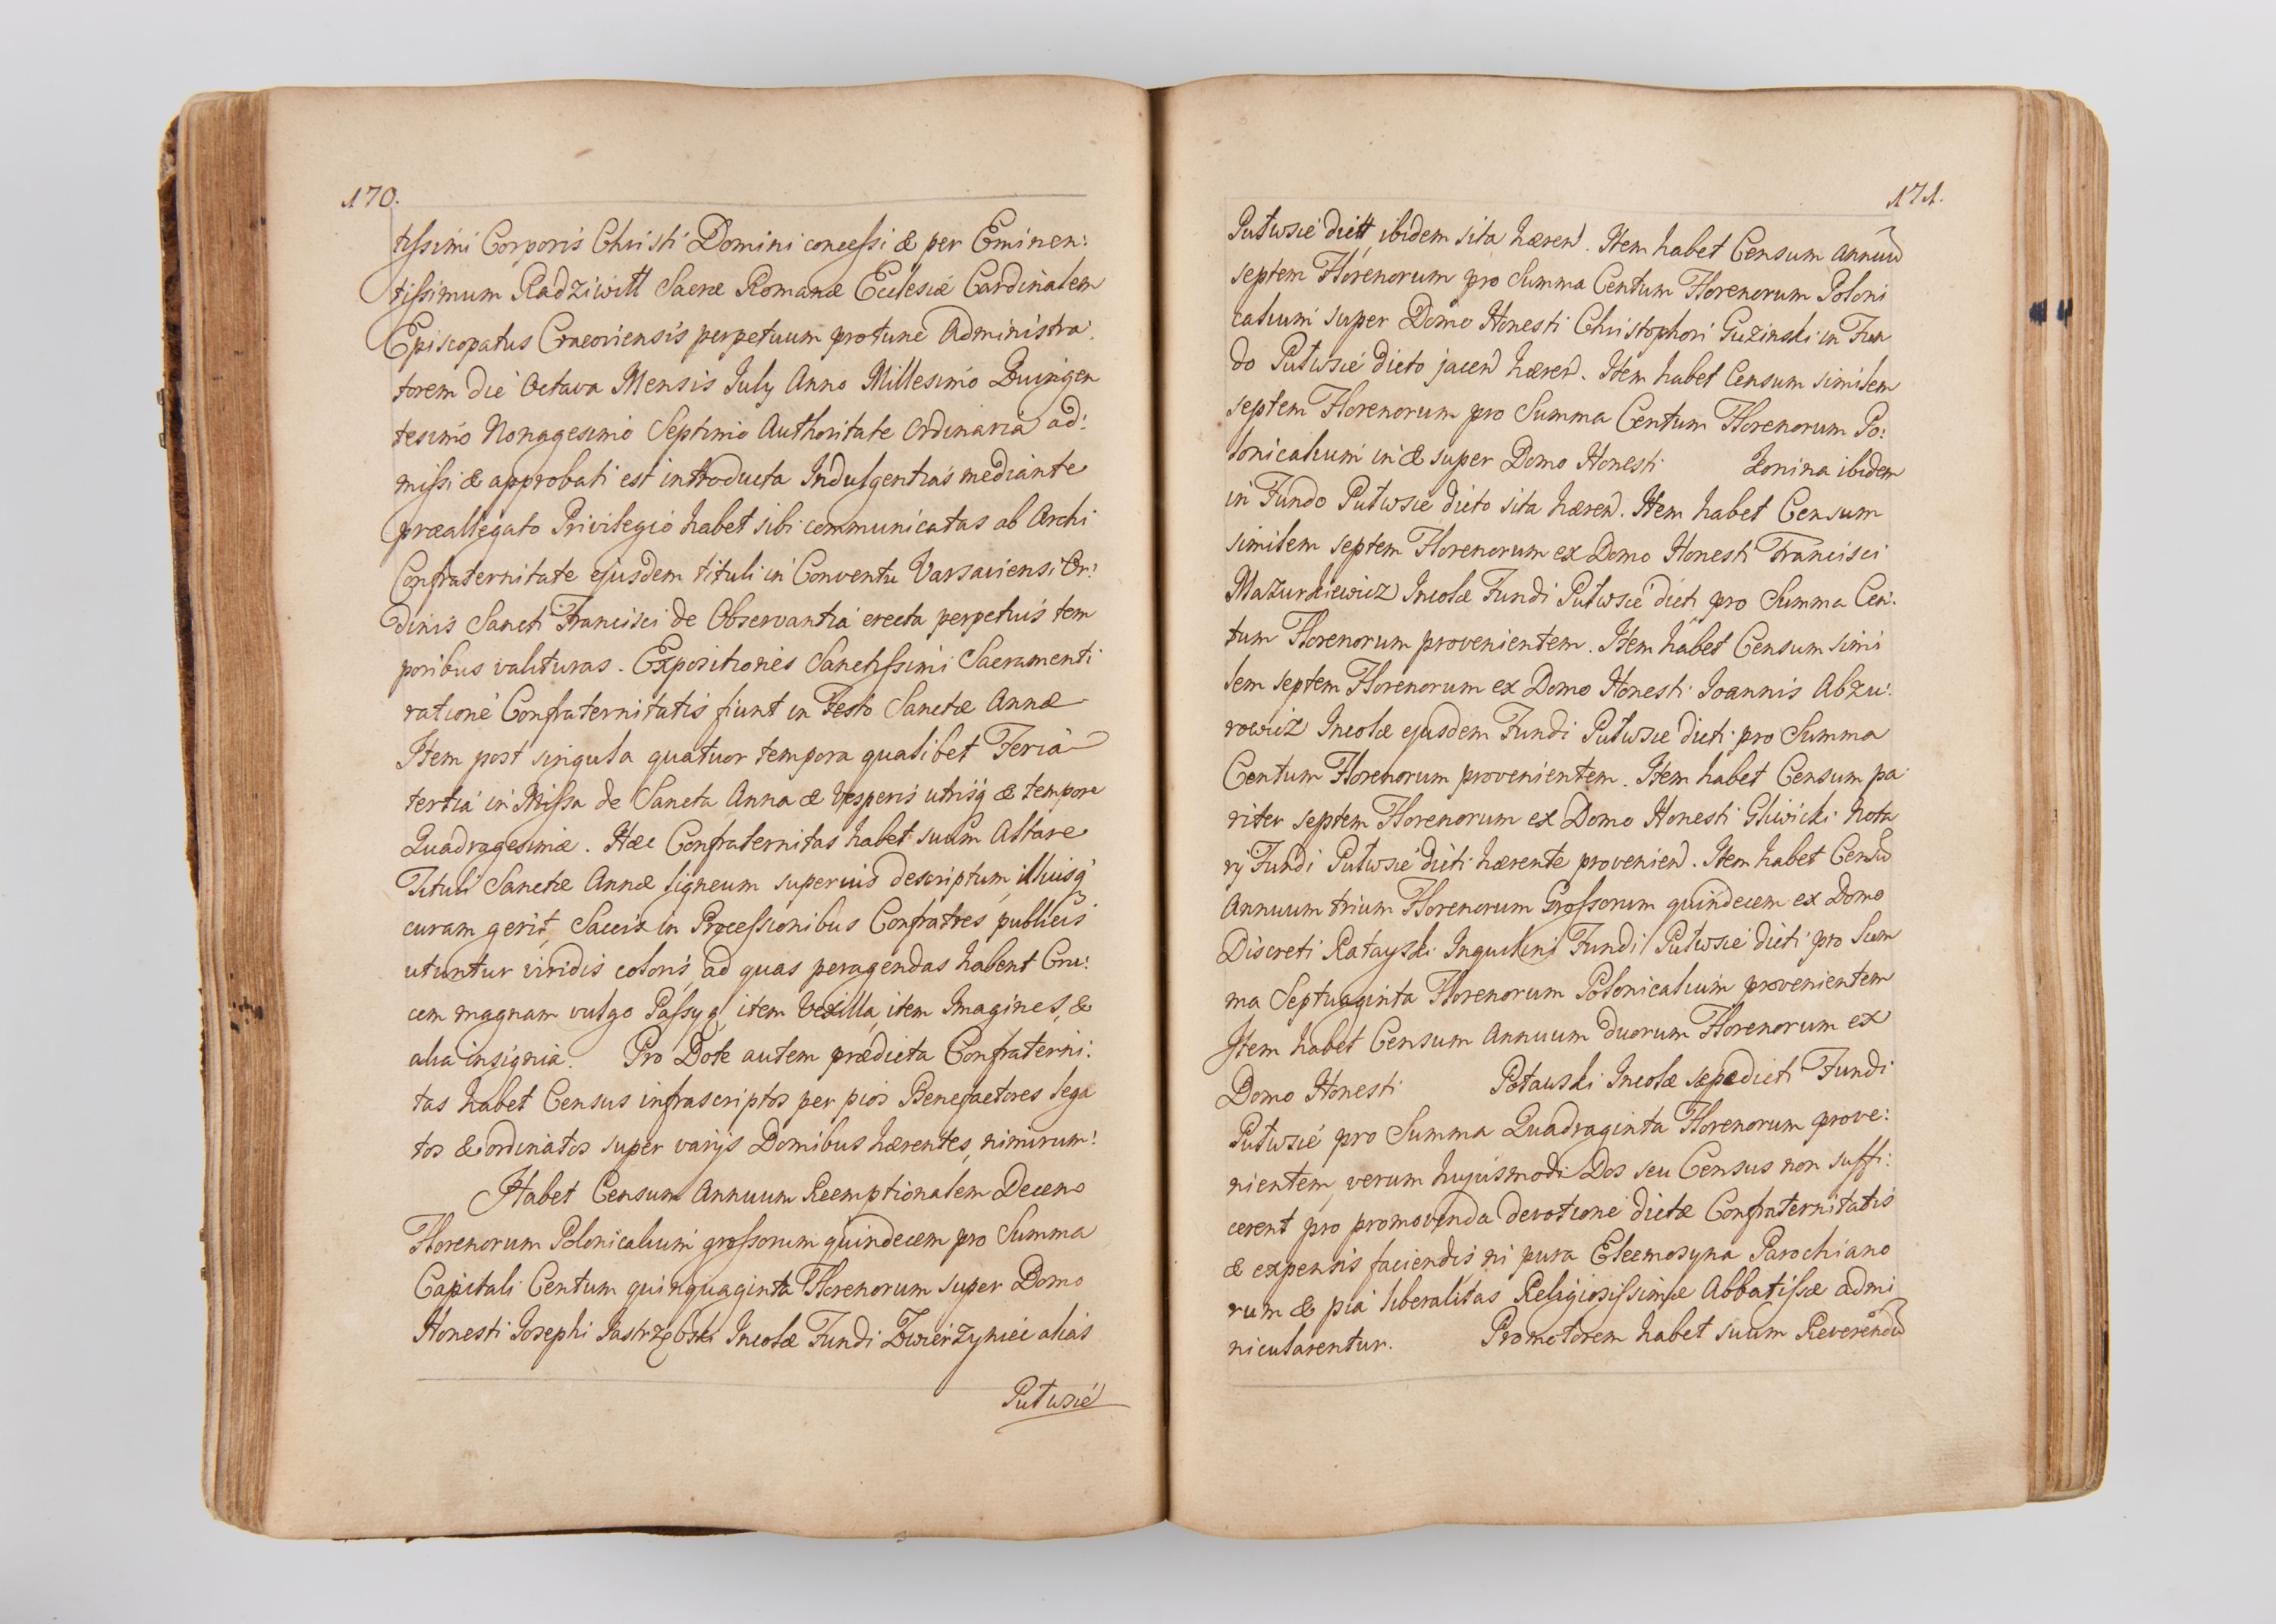 170.
tissimi Corporis Christi Domini concessi & per Eminen:
tissimum Radziwill Sacræ Romanæ Ecclesiæ Cardinalem
Episcopatus Cracoviensis perpetuum protunc Administra:
torem die Octava Mensis July Anno Millesimo Quingen
tesimo Nonagesimo Septimo Authoritate Ordinaria ad:
missi & approbati est introducta Indulgentias mediante
præallegato Privilegio habet sibi communicatas ab Archi
Confraternitate ejusdem tituli in Conventu Varsaviensi Or:
dinis Sancti Francisci de Observantia erecta perpetuis tem
poribus valituras. Expositiones Sanctissimi Sacramenti
ratione Confraternitatis fiunt in Festo Sanctæ Annæ
Item post singula quatuor tempora qualibet Feria
tertia in Missa de Sancta Anna & Vesperis utrisq & tempore
Quadragesimæ. Hæc Confraternitas habet suum Altare
Tituli Sanctæ Annæ ligneum superius descriptum, illiusq
curam gerit, Saccis in Processionibus Confratres publicis
utuntur viridis coloris, ad quas peragendas habent Cru:
cem magnam vulgo Passyą, item Vexilla, item Imagines, &
alia insignia. Pro Dote autem prædicta Confraterni:
tas habet Census infrascriptos per pios Benefactores lega
tos & ordinatos super varijs Domibus hærentes, nimirum:
Habet Censum Annuum Reemptionalem Decem
Florenorum Polonicalium grossorum quindecem pro Summa
Capitali Centum quinquaginta Florenorum super Domo
Honesti Josephi Jastrzębski Incolæ Fundi Zwierzyniec alias
Pułwsie
171.
Pułwsie dictt, ibidem sita hæren. Item habet Censum Annuu
septem Florenorum pro Summa Centum Florenorum Poloni
calium super Domo Honesti Christophori Guzinski in Fun
do Pułwsie dicto jacen hæren. Item habet Censum similem
septem Florenorum pro Summa Centum Florenorum Po:
lonicalium in & super Domo Honesti Zonina ibidem
in Fundo Pułwsie dicto sita hæren. Item habet Censum
similem septem Florenorum ex Domo Honesti Francisci
Mazurkiewicz Incolæ Fundi Pułwsie dicti pro Summa Cen:
tum Florenorum provenientem. Item habet Censum simi
lem septem Florenorum ex Domo Honesti Joannis Abzu:
rowicz Incolæ ejusdem Fundi Pułwsie dicti pro Summa
Centum Florenorum provenientem. Item habet Censum pa
riter septem Florenorum ex Domo Honesti Gliwicki Nota
rij Fundi Pułwsie dicti hærente provenien. Item habet Censu
Annuum trium Florenorum Grossorum quindecem ex Domo
Discreti Ratayski Inquilini Fundi Pułwsie dicti pro Sum
ma Septuaginta Florenorum Polonicalium provenientem
Item habet Censum Annuum duorum Florenorum ex
Domo Honesti Potauski Incolæ sæpedicti Fundi
Pułwsie pro Summa Quadraginta Florenorum prove:
nientem, verum hujusmodi Dos seu Census non suffi:
cerent pro promovenda devotione dictæ Confraternitatis
& expensis faciendis, ni pura Eleemosyna Parochiano
rum & pia liberalitas Religiosissimæ Abbatissæ admi
nicularentur. Promotorem habet suum Reverendu